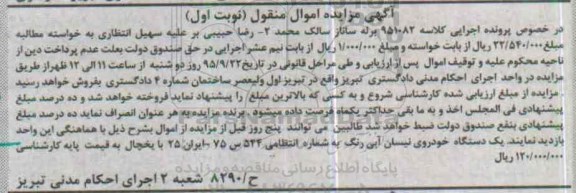 آگهی مزایده اموال منقول (نوبت اول)
در خصوص پرونده اجرایی کلاسه ۹۵۱۰۸۲ برله ساناز سالک محمد ۲- رضا حبیبی بر علیه سهیل انتظاری به خواسته مطالبه
مبلغ ۲۲/۵۴۰/۰۰۰ ریال از بابت خواسته و مبلغ ۱/۰۰۰/۰۰۰ ریال از بابت نیم عشر اجرایی در حق صندوق دولت بعلت عدم پرداخت دین از
ناحیه محکوم علیه و توقیف اموال پس از ارزیابی و طی مراحل قانونی در تاریخ ۹۵/۹/۲۲ روز دو شنبه از ساعت ۱۱ الی ۱۲ ظهر از طریق
مزایده در واحد اجرای احکام مدنی دادگستری تبریز واقع در تبریز اول ولیعصر ساختمان شماره ۴ دادگستری بفروش خواهد رسید
مزایده از مبلغ ارزیابی شده کارشناسی شروع و به کسی که بالاترین مبلغ را پیشنهاد نماید فروخته خواهد شد و ده درصد مبلغ
پیشنهادی فی المجلس اخذ و به ما بقی حداکثر یکماه فرصت داده میشود برنده مزایده به هر عنوان انصراف نماید ده درصد مبلغ
پیشنهادی بنفع صندوق دولت ضبط خواهد شد طالبین می توانند پنج روز قبل از مزایده از اموال بشرح ذیل با هماهنگی این واحد
بازدید نمایند. یک دستگاه خودروی نیسان آبی رنگ به شماره انتظامی ۵۳۴ س ۷۵ -ایران ۲۵ با یخچال به قیمت پایه کارشناسی
۱۲۰/۰۰۰/۰۰۰ ریال
ح/۸۲۹۰ شعبه ۲ اجرای احکام مدنی تبریز
پایگاه اطلاع رسانی مناقصه و مزایده